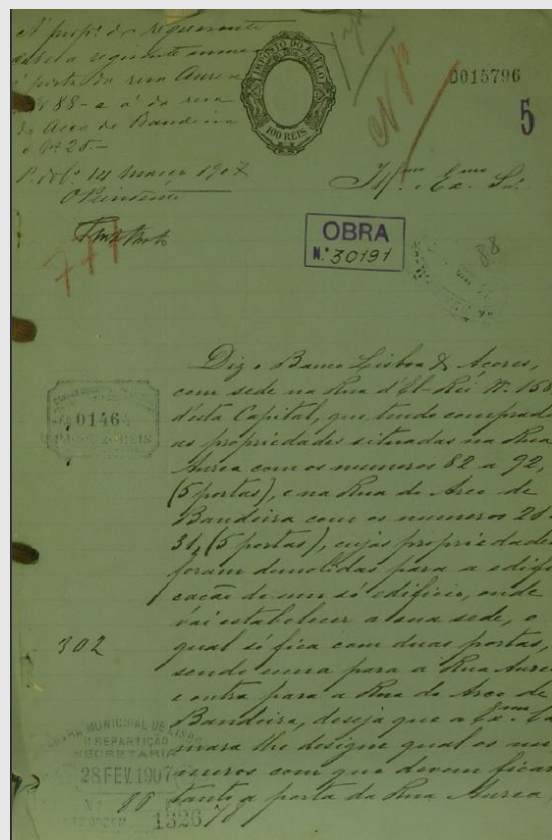 A propr. do requerente
deve a seguinte nume
porta da rua Aurea
Nº 88 - e a da rua
do Arco do Bandeira
o Nº 28 -
14 março 1907
IMPOSTO DO SELLO
100 REIS
0015796
5
Illmo e Exmo Snr.
OBRA
N.º 30191
88
777
Diz o Banco Lisboa & Açores,
com sede na Rua d'El-Rei Nº 150
d'esta Capital, que tendo comprado
as propriedades situadas na Rua
Aurea com os numeros 82 a 92,
(5 portas), e na Rua do Arco do
Bandeira com os numeros
31, (5 portas), cujas propriedades
foram demolidas para a edifi
cação de um só edificio, onde
vai estabelecer a sua sede, o
qual só fica com duas portas,
sendo uma para a Rua Aurea
e outra para a Rua do Arco do
Bandeira, deseja que a Exma Ca
mara lhe designe qual os nu
meros com que devem ficar
tanto a porta da Rua Aurea,
01464
REIS
302
CAMARA MUNICIPAL DE LISBOA
REPARTIÇÃO
SECRETARIA
28 FEV. 1907
Nº
1326